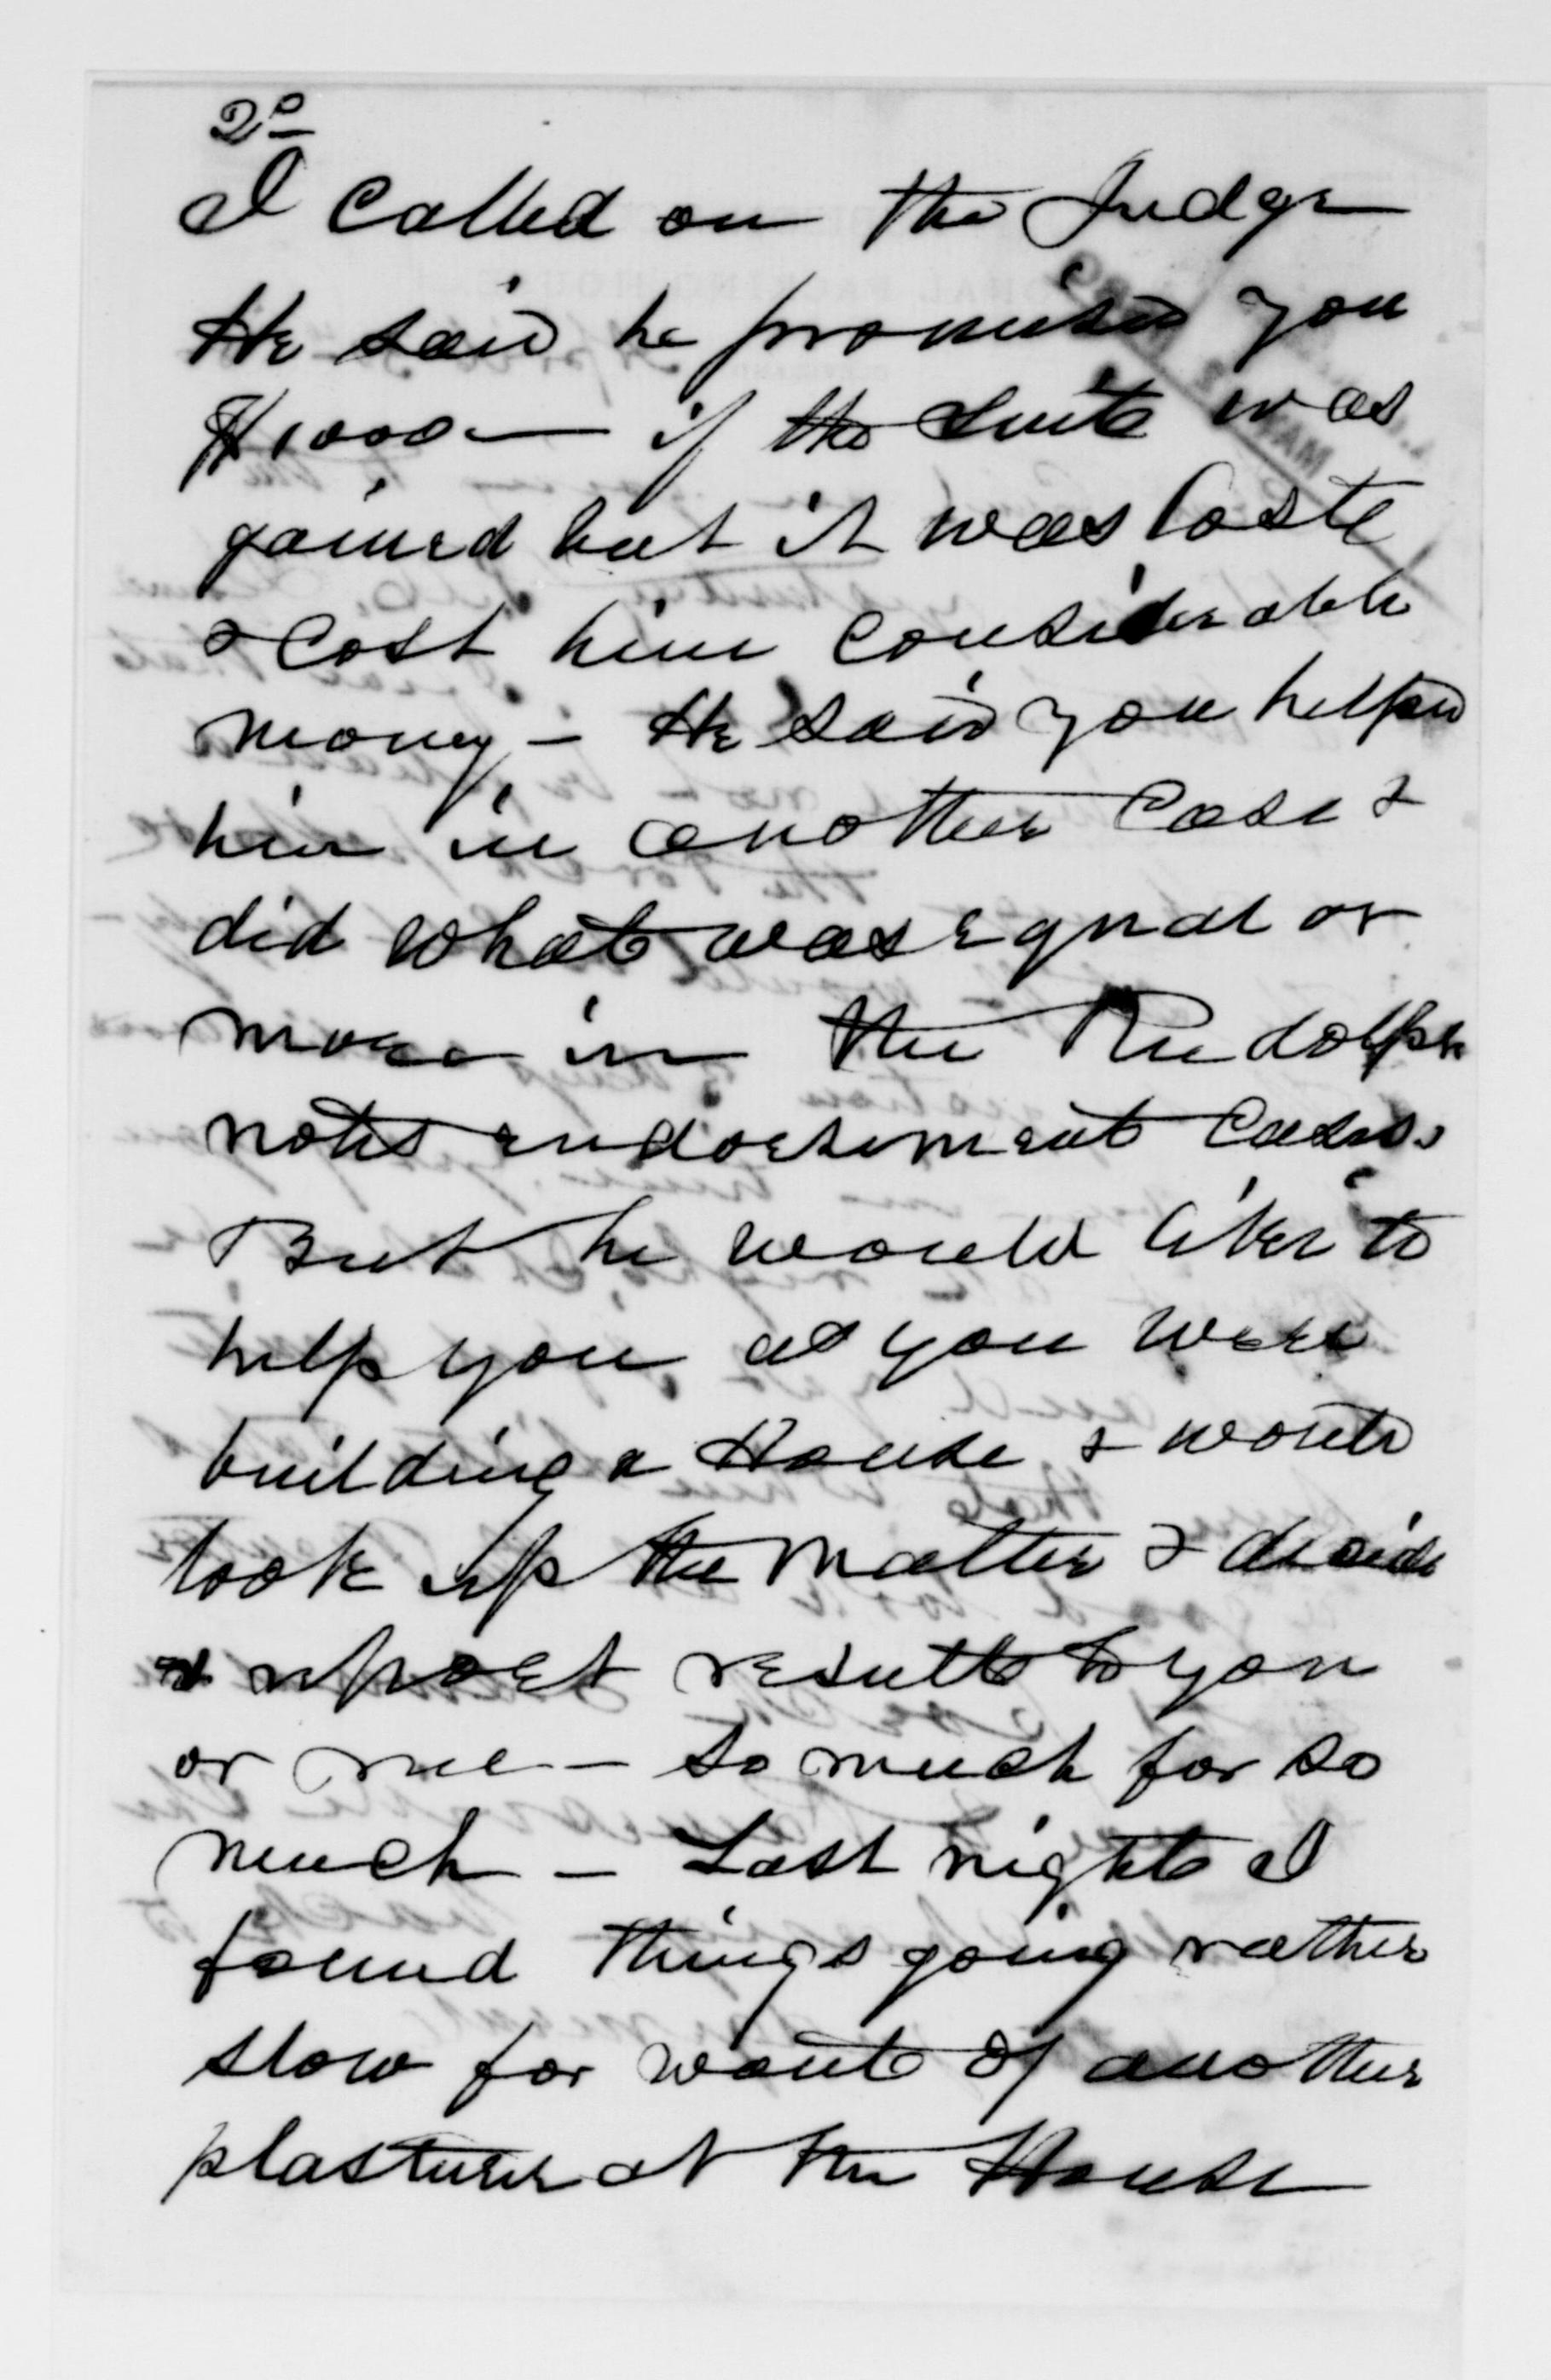 2º
I called on the Judge
He said he promised you
$1000— if the Suit was
gained but it was lost
& cost him considerable
money – He said you helped
him in another case &
did what was equal or
more in the Rudolph
notes endorsement cases.
But he would like to
help you as you were
building a House & would
look up the matter & decide
& report result to you
or me – so much for so
much – Last night I
found things going rather
slow for want of another
plasturer at the House